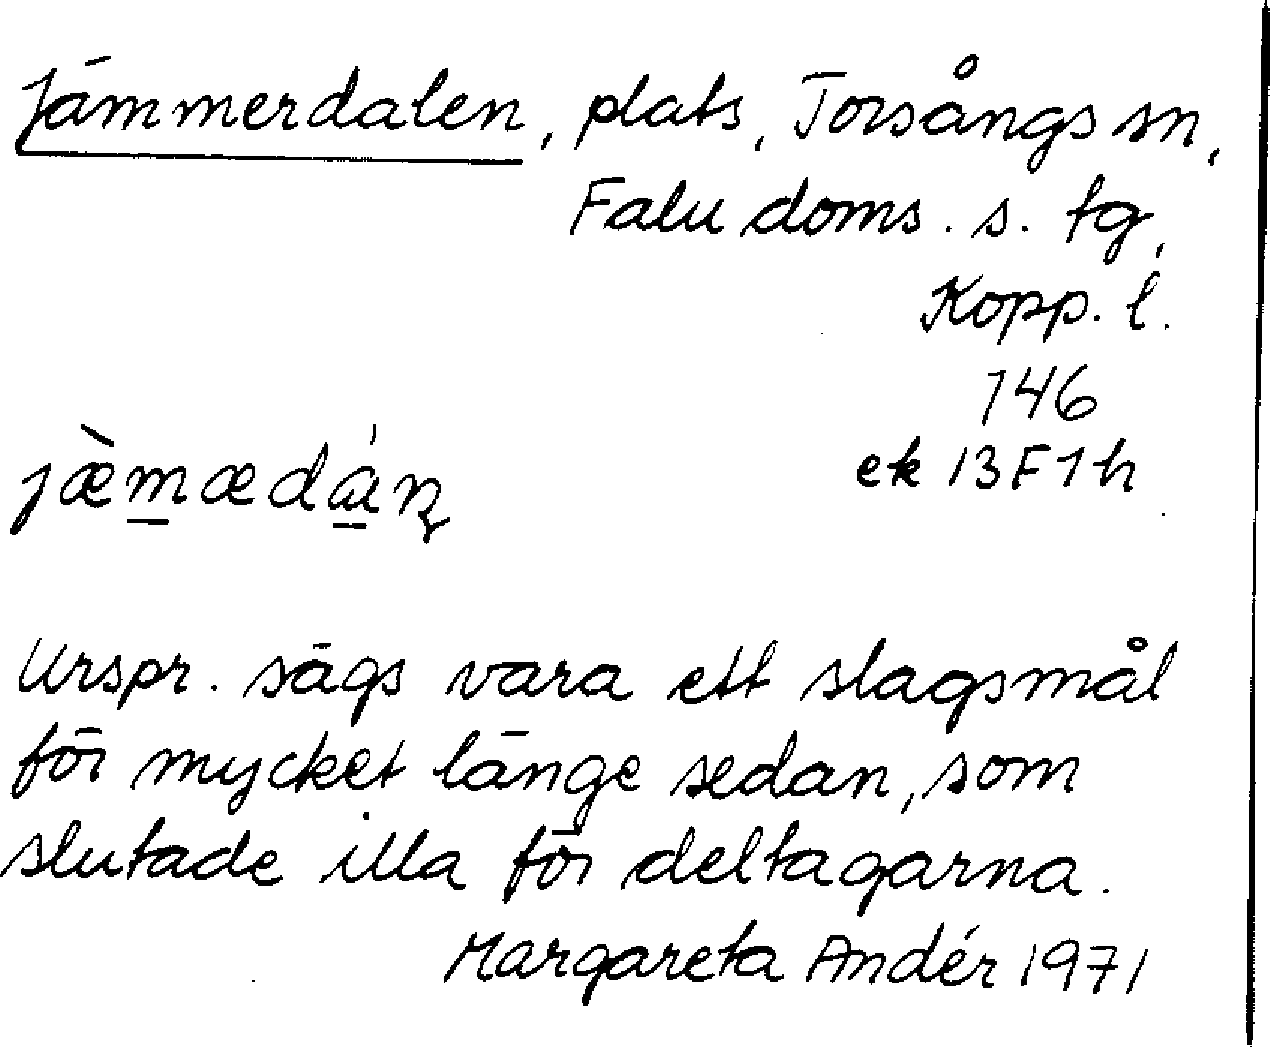 Jämmerdalen, plats, Torsångs sn,
Falu doms. s. tg,
Kopp. l.
146
jæ̀m̲ædá̲ɳ
ek 13F1h
Urspr. sägs vara ett slagsmål
för mycket länge sedan, som
slutade illa för deltagarna.
Margareta Andér 1971